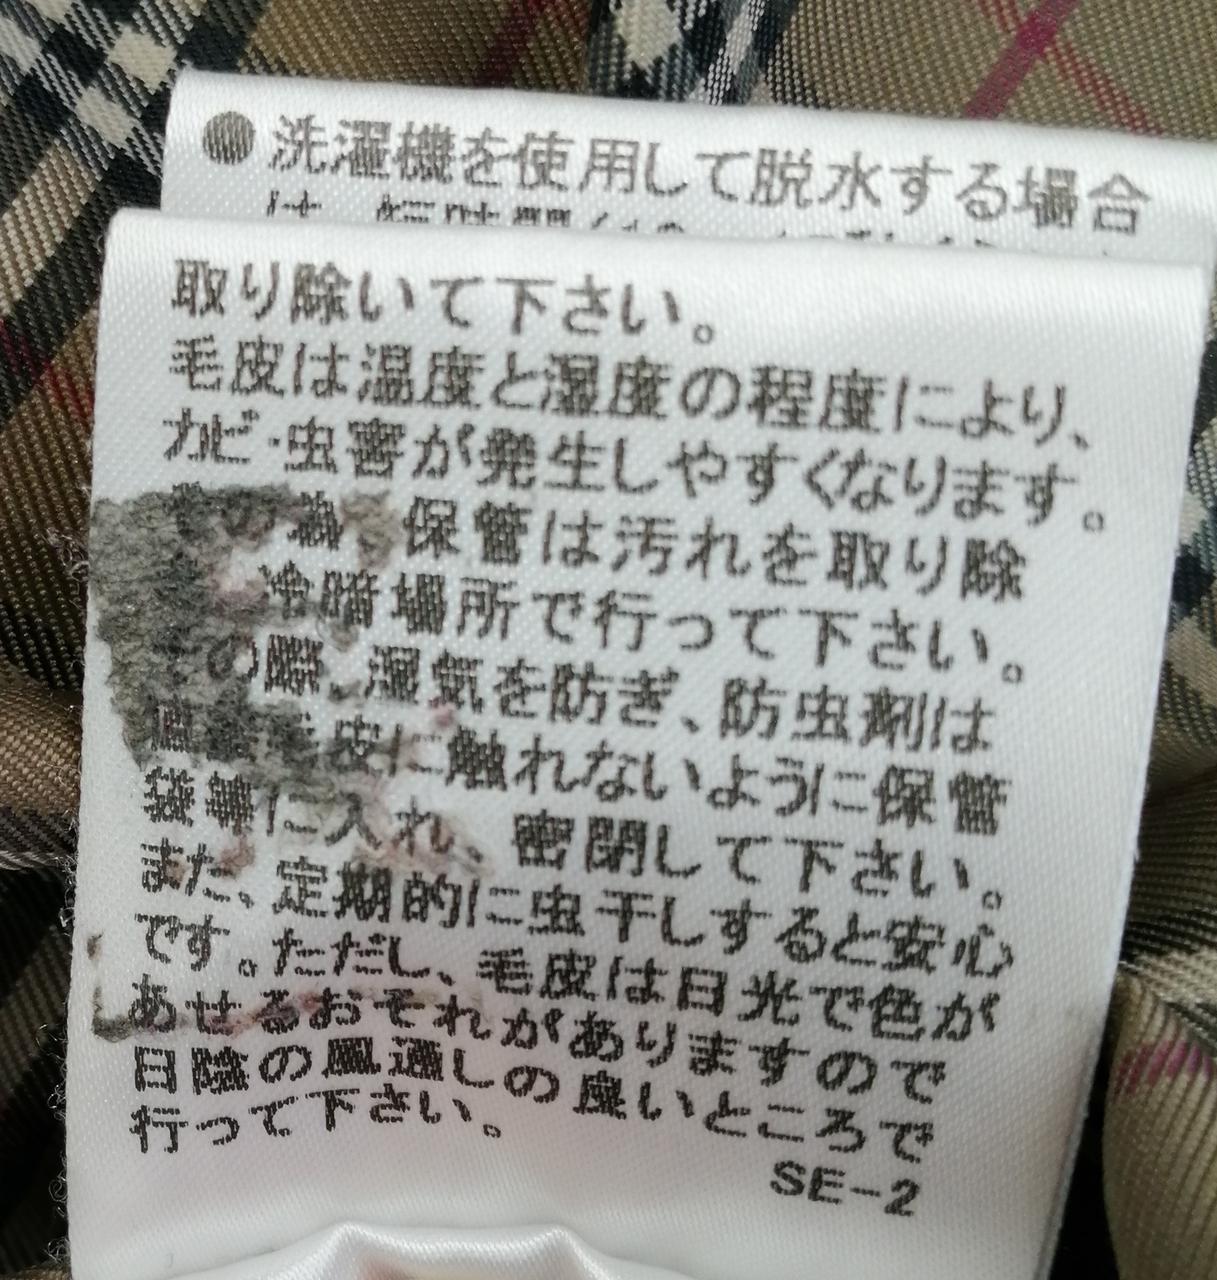 ●洗濯機を使用して脱水する場合
は、短時間
取り除いて下さい。
毛皮は温度と湿度の程度により、
カビ・虫害が発生しやすくなります。
為、保管は汚れを取り除
冷暗場所で行って下さい。
の際、湿気を防ぎ、防虫剤は
直接毛皮に触れないように保管
袋等に入れ、密閉して下さい。
また、定期的に虫干しすると安心
です。ただし、毛皮は日光で色が
あせるおそれがありますので
日陰の風通しの良いところで
行って下さい。
SE-2